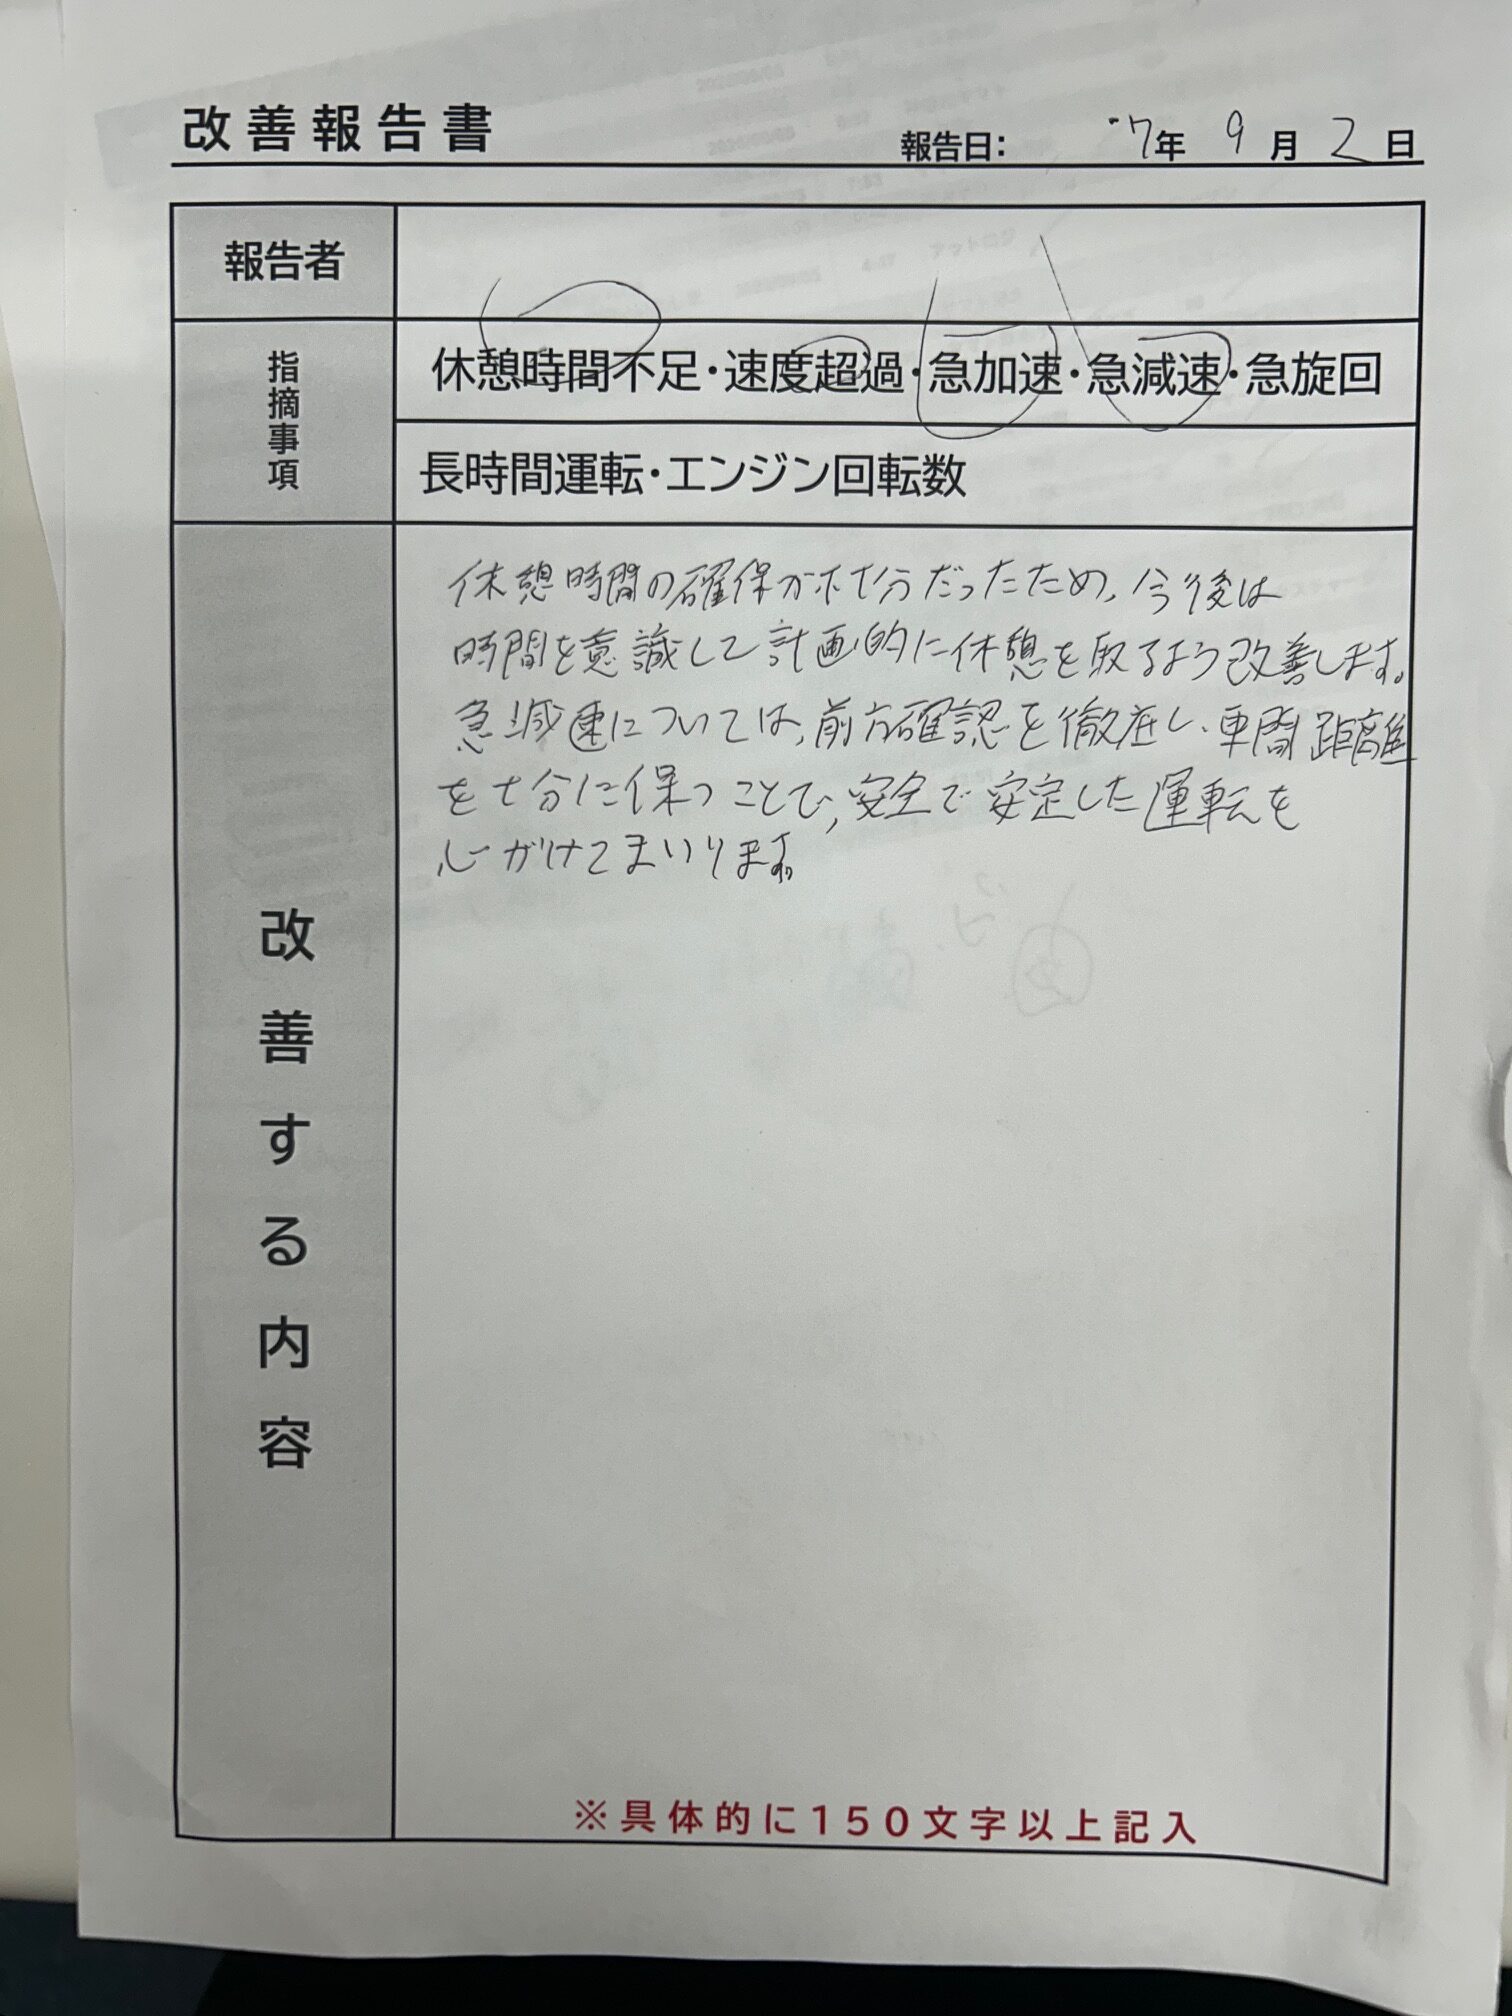 改善報告書
報告日: 7年 9月 2日
報告者
指摘事項
休憩時間不足・速度超過・急加速・急減速・急旋回
長時間運転・エンジン回転数
改善する内容
休憩時間の確保が不十分だったため、今後は
時間を意識して計画的に休憩を取るよう改善します。
急減速については、前方確認を徹底し、車間距離
を十分に保つことで、安全で安定した運転を
心がけてまいります。
※具体的に150文字以上記入